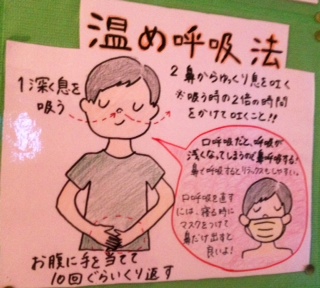 温め呼吸法
1 深く息を
吸う
2 鼻からゆっくり息を吐く
※吸う時の2倍の時間
をかけて吐くこと!!
口呼吸だと、呼吸が
浅くなってしまうので鼻呼吸する!
鼻で呼吸するとリラックスもしやすい。
口呼吸を直す
には、寝る時に
マスクをつけて
鼻だけ出すと
良いよ!
お腹に手を当てて
10回ぐらいくり返す